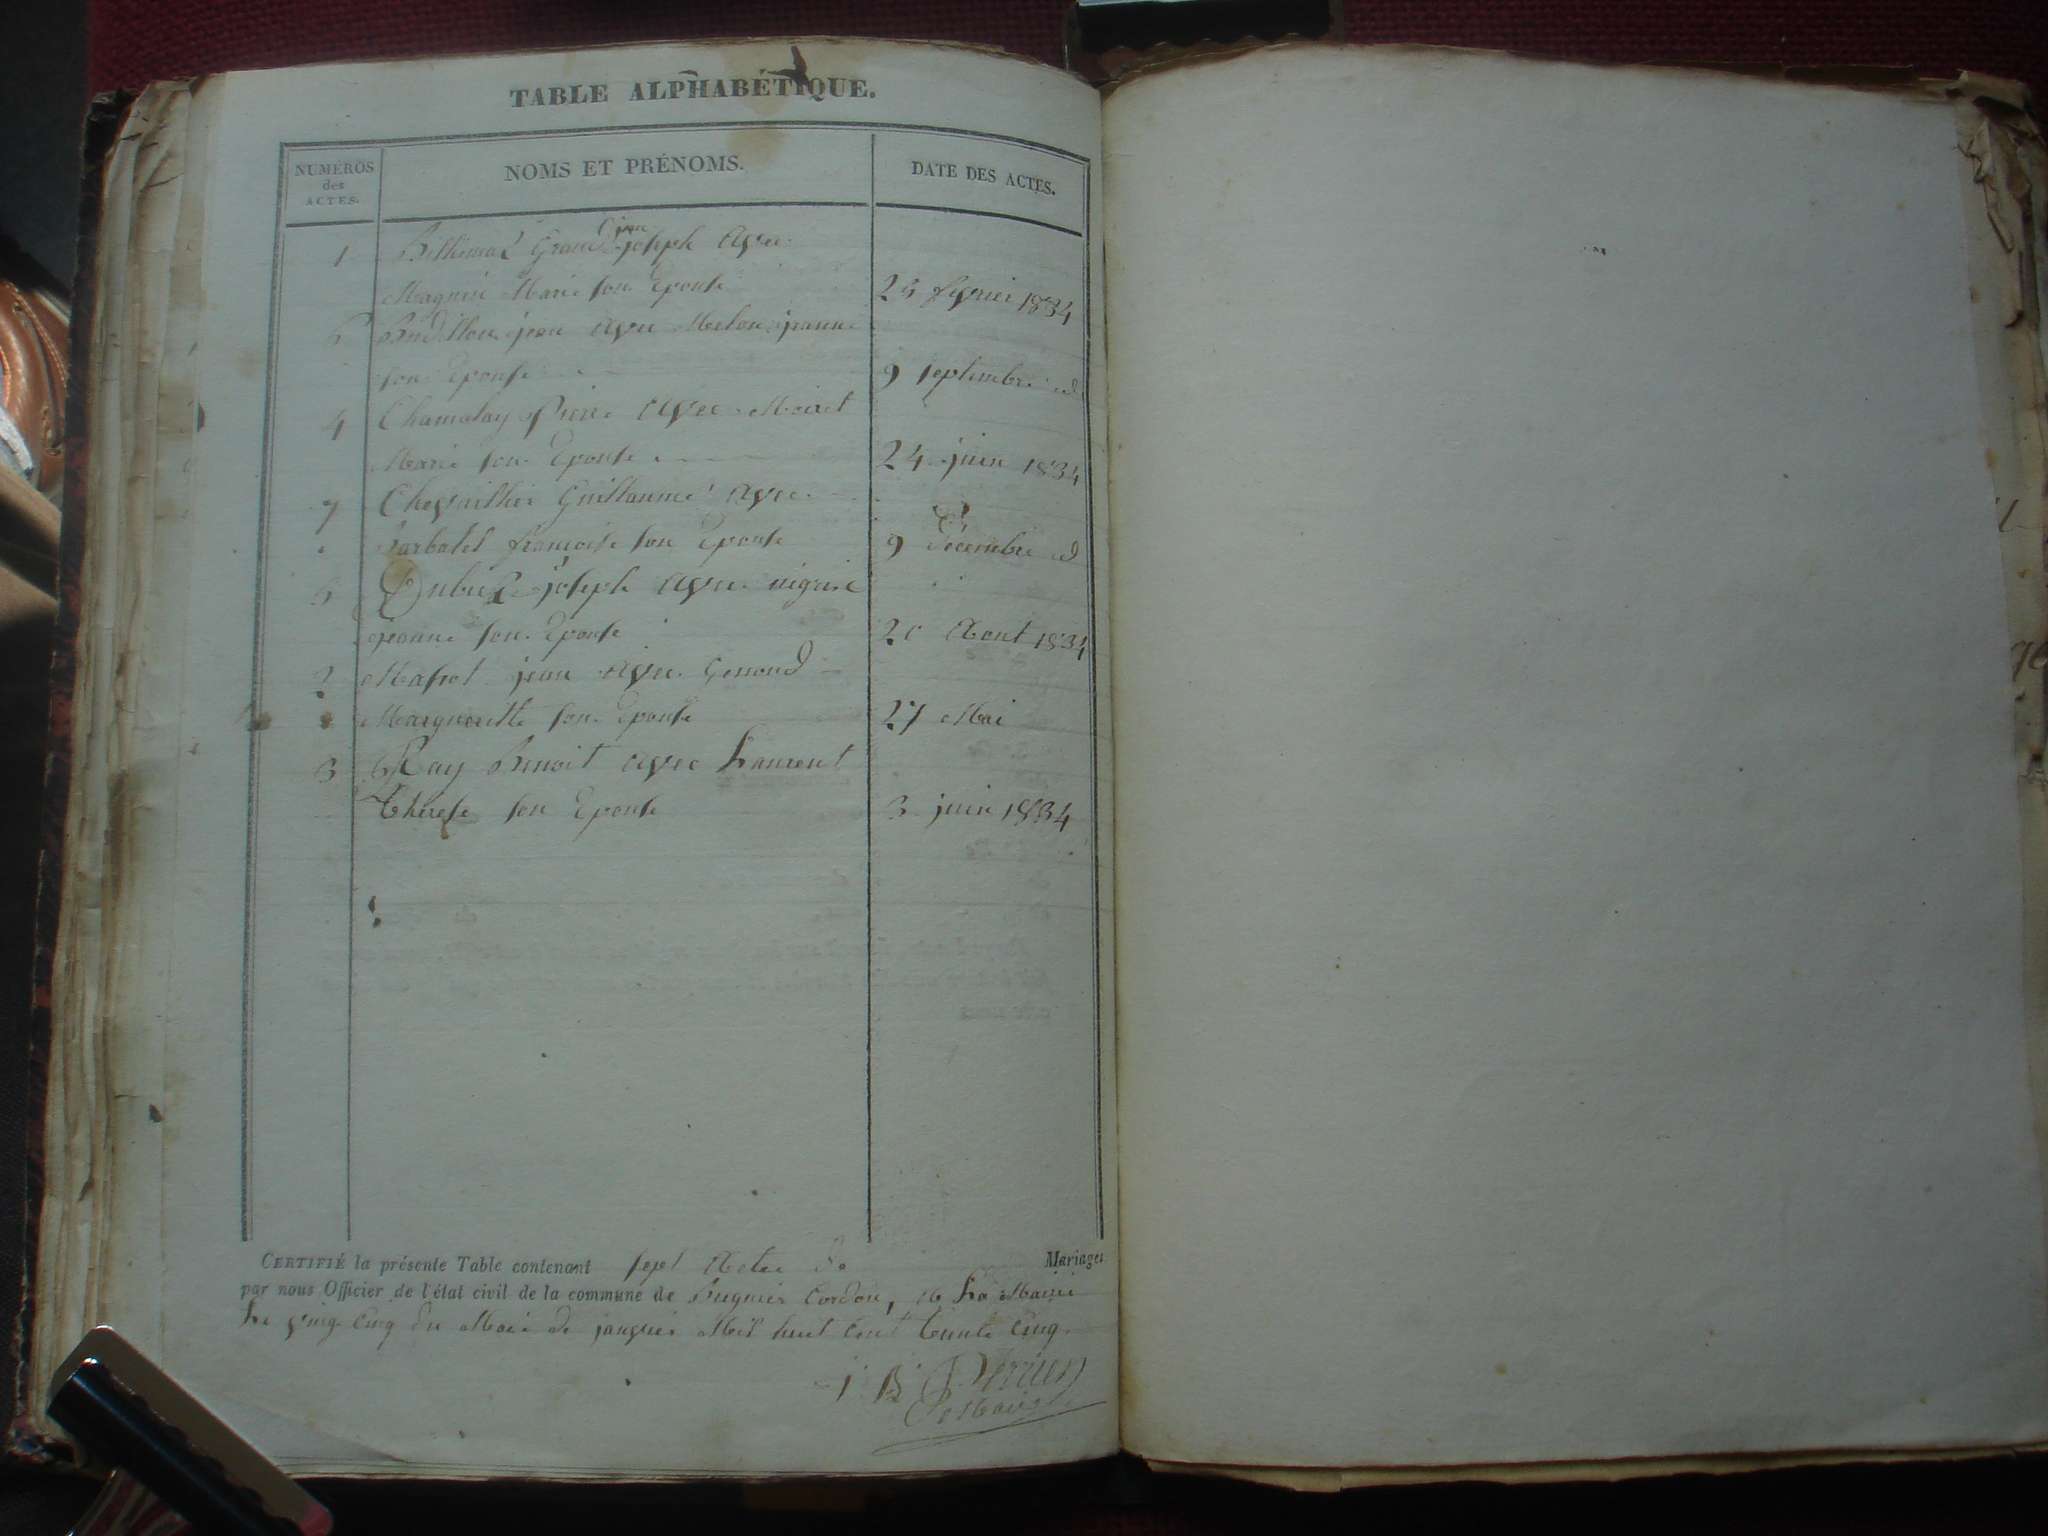 TABLE ALPHABÉTIQUE.
NUMÉROS des ACTES.
NOMS ET PRÉNOMS.
DATE DES ACTES.
1 Grand joseph avec
Magnin Marie son Epouse 25 fevrier 1834
6 jean avec Melon jeanne
son Epouse 9 septembre id
4 Chamolay Pierre avec Moiret
Marie son Epouse 24 juin 1834
7 Chevaillier Guillaume avec
Barbolet francoise son Epouse 9 Décembre id
5 joseph avec
jeanne son Epouse 20 Aout 1834
2 jean avec Genoud
Margueritte son Epouse 27 Mai
3 Ray Benoit avec Laurent
Therese son Epouse 3 juin 1834
CERTIFIÉ la présente Table contenant sept Actes de Mariages
par nous Officier de l'état civil de la commune de Bregnier Cordon, a La Mairie
Le vingt Cinq du Moi de janvier Mil huit Cent trente Cinq.